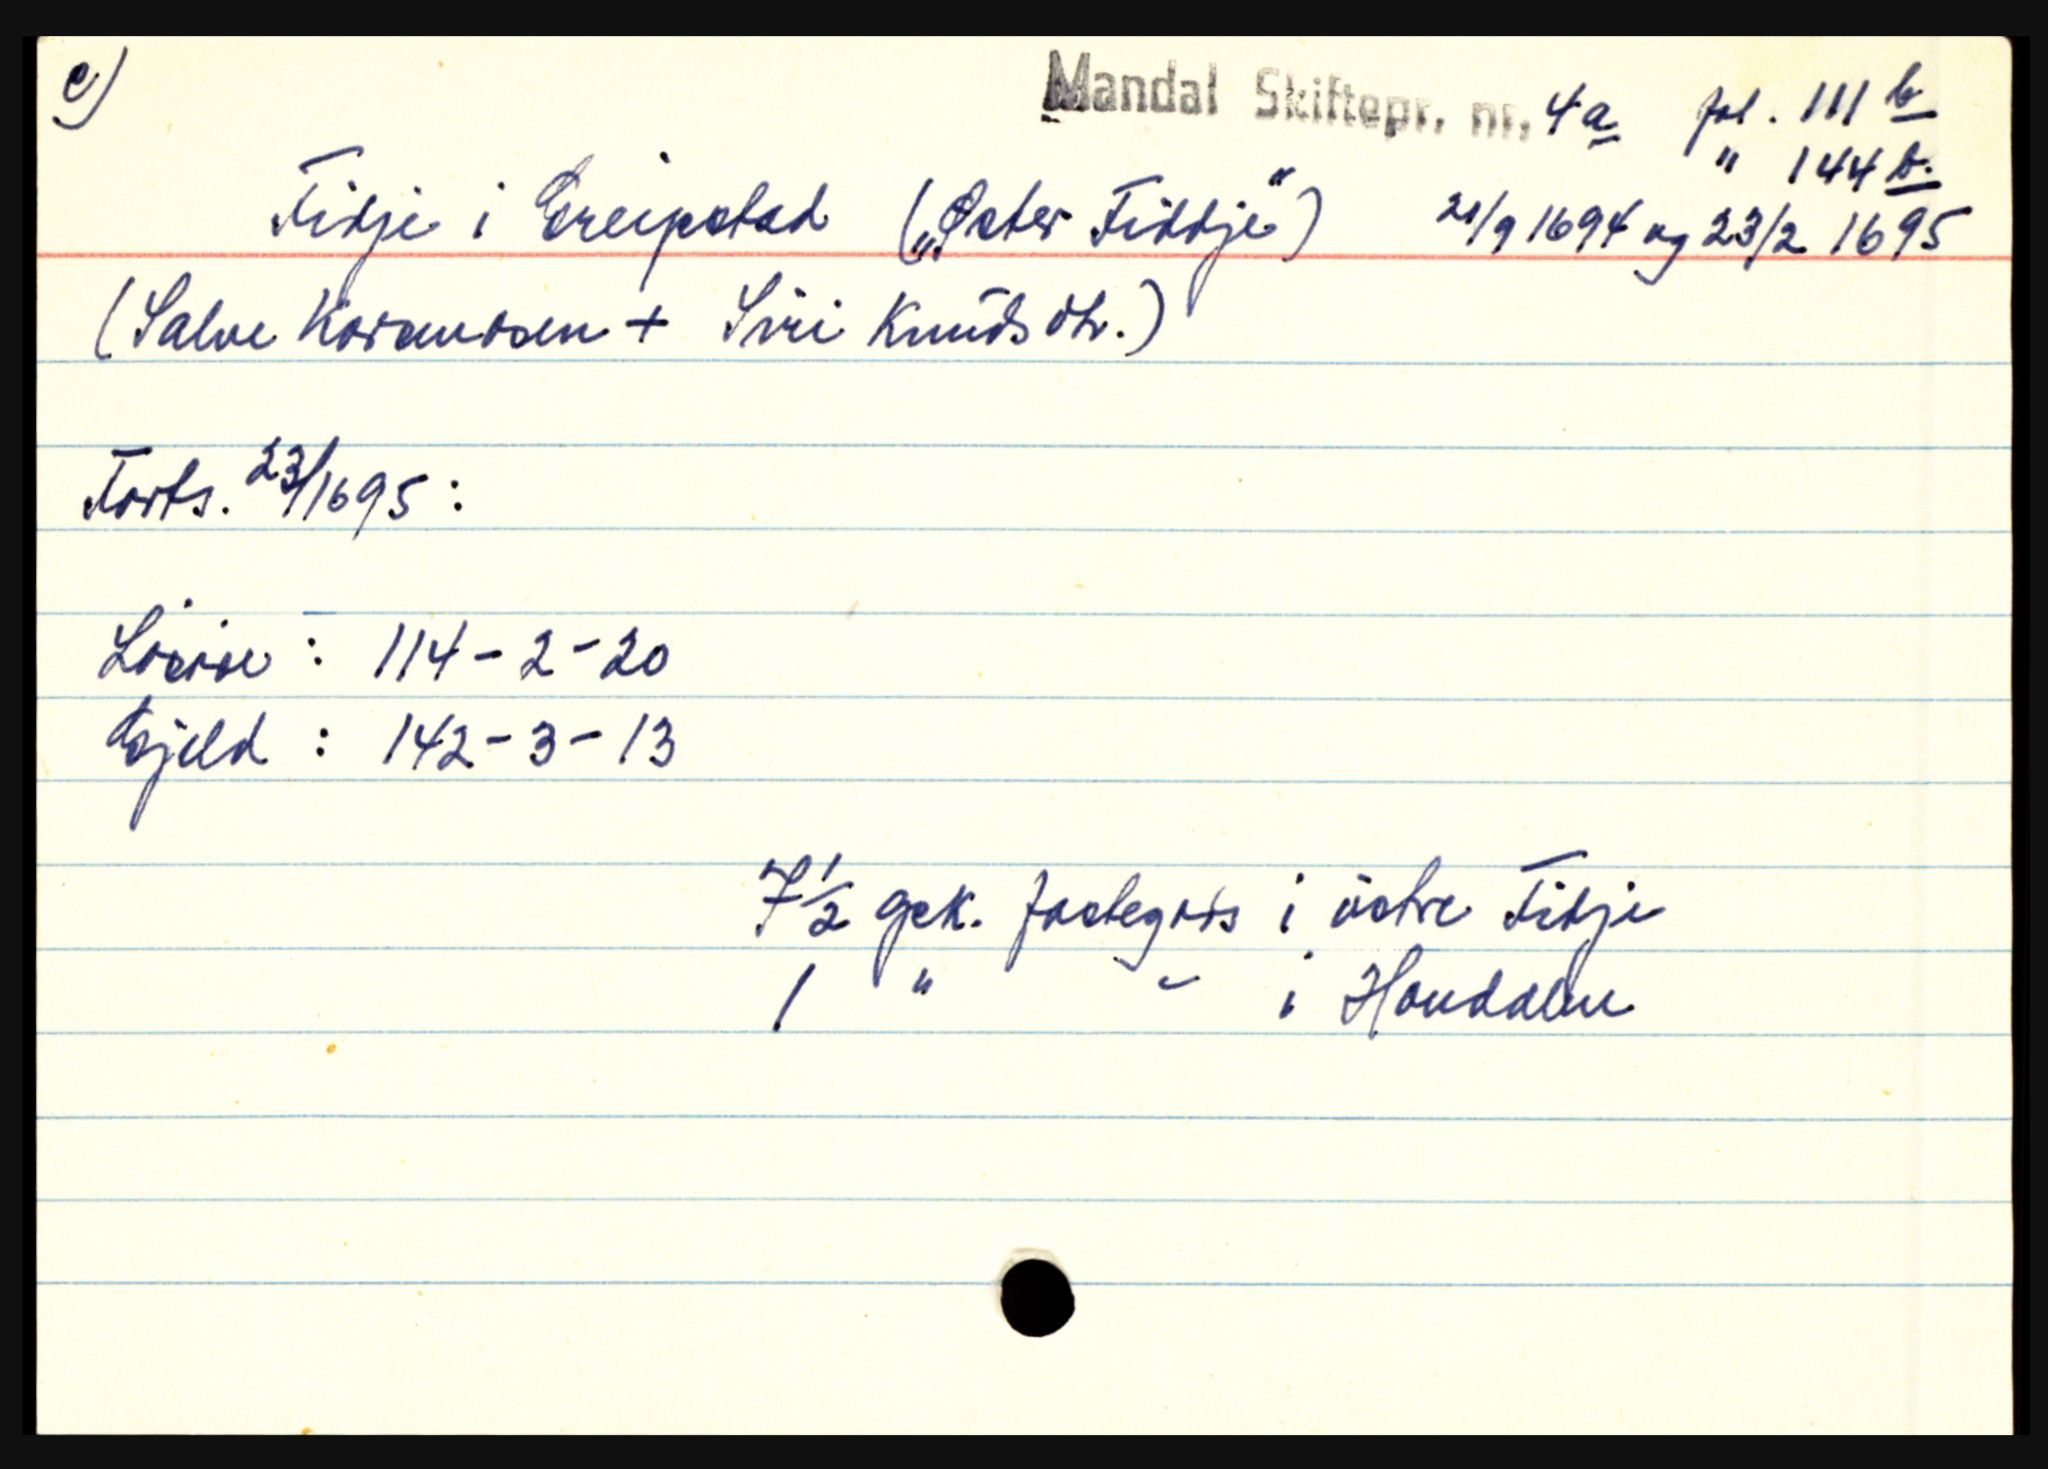 c)
Mandal Skiftepr. nr. 4a fol. 111 b
" 144 b.
Fidje i Greipstad („Øster Fiddje") 21/9 1694 og 23/2 1695
(Salve + Siri Knüdsdtr.)
Forts. 23/1695:
Lösöre : 114-2-20
Gjeld : 142-3-13
7 1/2 gsk. fastegods i östre Fidje
1 " " i